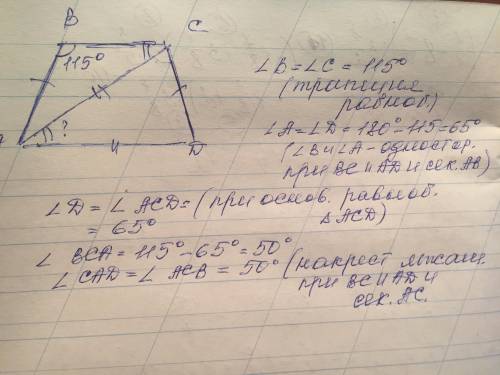 B
C
115°
?
D
∠B=∠C = 115°
(трапеция
равноб.)
∠A=∠D=180°-115=65°
(∠B и ∠A - одностор.
при BC и AD и сек. AB)
∠D = ∠ACD= (при основ. равноб.
= 65° △ACD)
∠ BCA = 115° - 65° = 50°
∠ CAD = ∠ ACB = 50° (накрест лежащ.
при BC и AD и
сек. AC.